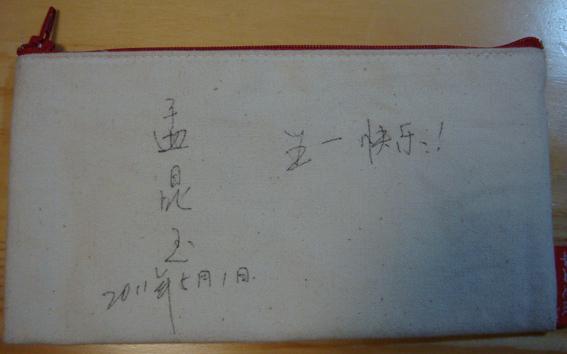 孟昆玉
2011年5月1日.
五一快乐!